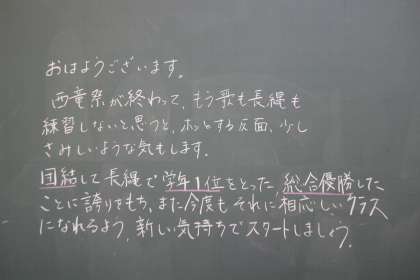 おはようございます。
西竜祭が終わって、もう歌も長縄も
練習しないと思うと、ホッとする反面、少し
さみしいような気もします。
団結して長縄で学年1位をとった、総合優勝した
ことに誇りをもち、また今度もそれに相応しいクラス
になれるよう、新しい気持ちでスタートしましょう。